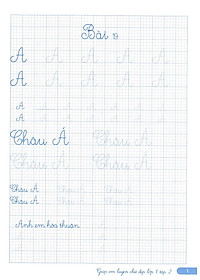 Bài 19
A A A A A
A A A A A
A A A A A
A A A A A
Châu Á Châu Á
Châu Á Châu Á
Châu Á Châu Á Châu Á
Châu Á Châu Á Châu Á
Anh em hòa thuận.
Giúp em luyện chữ đẹp lớp 1 tập 2